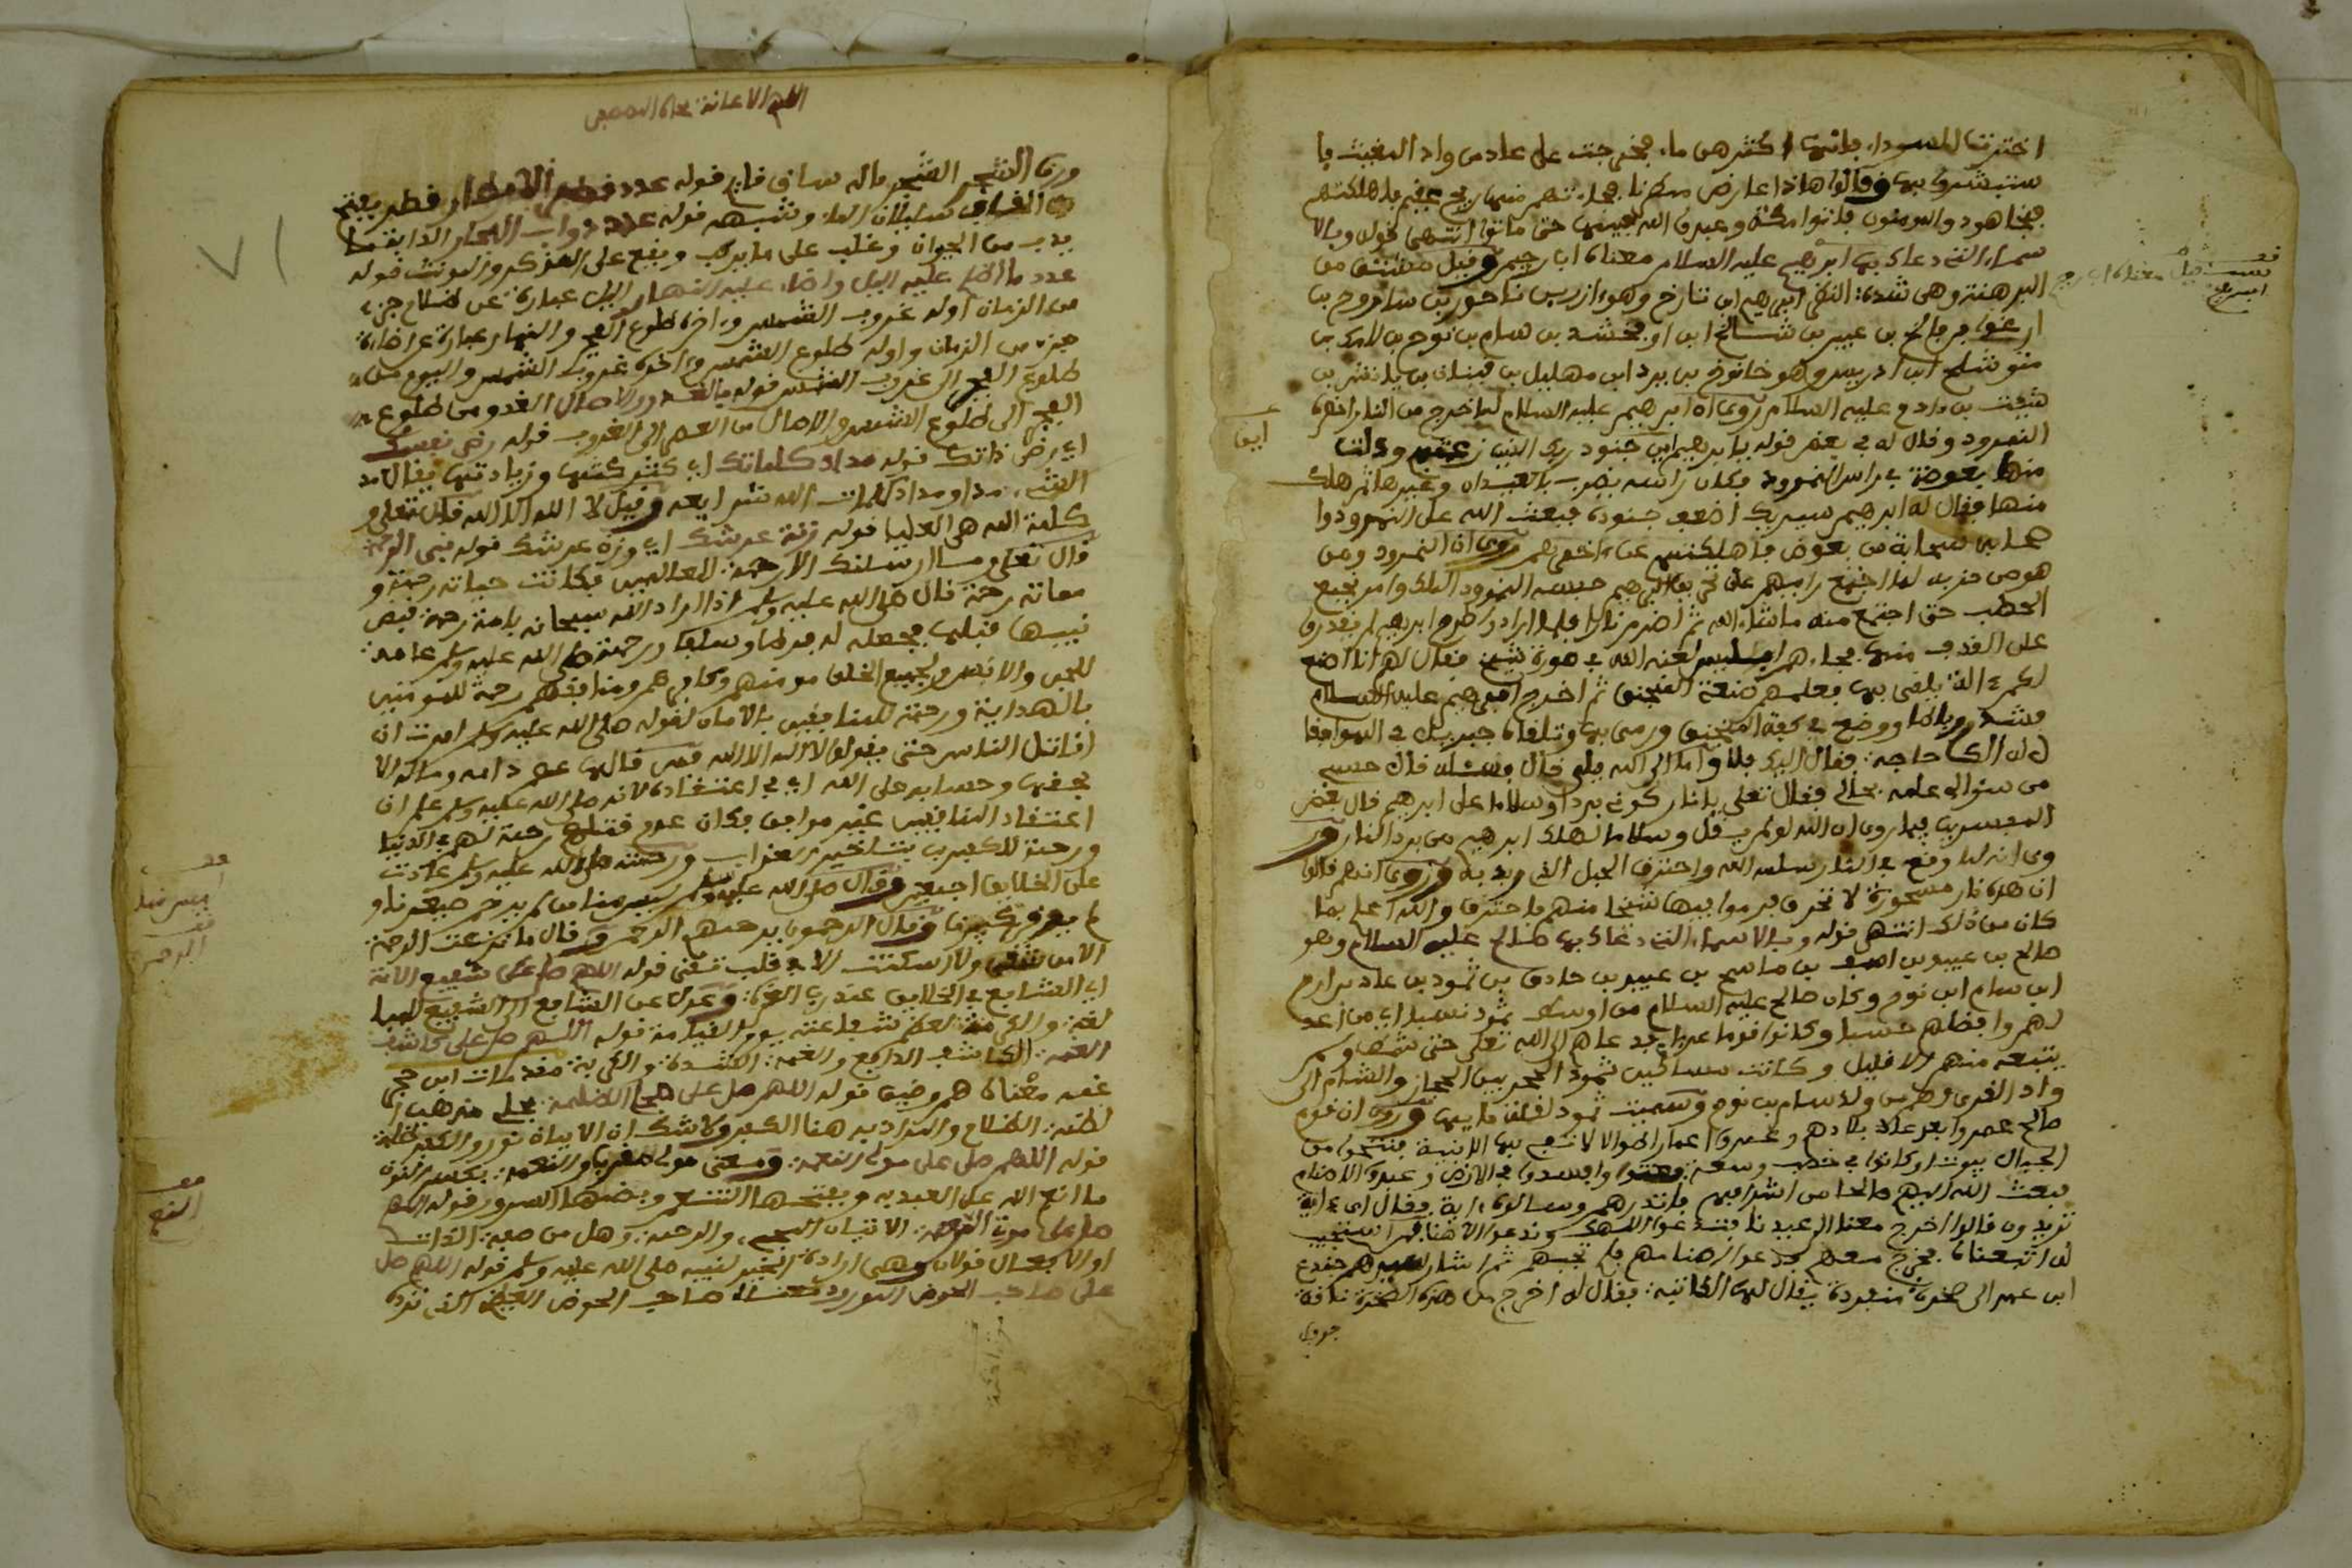 اخترت السوداء فانها اكثرهن ماء فخرجت على عاد من واد المغيث فا
ستبشروا بها وقالوا هاذا عارض ممطرنا فجاءتهم منها ريح عقيم فاهلكتهم
فنجا هود والمومنون فاتوا مكة وعبدوا الله فيها حتى ماتوا انتهى قوله وبالا
سماء التى دعاك بها ابرهيم عليه السلام معناه اب رحيم وقيل مشتق من
البرهمة وهى شدة النظر ابرهيم ابن تارخ وهو ازر بن ناحور بن ساروح بن
ارغوا بن فالخ بن عيبر بن شالخ ابن ارفخشد بن سام بن نوح بن لامك بن
متوشلخ ابن ادريس وهو خانوخ بن يرد ابن مهليل بن قينان بن يانش بن
شيث بن ءادم عليه السلام روى ان ابرهيم عليه السلام لما خرج من النار احضره
النمرود وقال له فى بعض قوله يا ابرهيم اين جنود ربك الذى زعمتم ودلت
منها بعوضة فى راس النمرود فكان راسه يضرب بالعيدان وغيرها ثم هلك
منها فقال له ابرهيم سيريك اضعف جنوده فبعث الله على النمرود
سحابة من بعوض فاهلكتهم عن ءاخرهم روى ان النمرود ومن
هو من حزبه لما اجتمع رايهم على تحريق ابرهيم حبسه النمرود الملك وامر بجمع
الحطب حتى اجتمع منه ماشاء الله ثم اضرم نارا فلما ارادوا طرح ابرهيم لم يقدروا
على القرب منها فجاءهم ابليس لعنه الله فى صورة شيخ فقال لهم انا اصنع
لكم ءالة يلقى بها فعلمهم صنعة المنجنيق ثم اخرج ابرهيم عليه السلام
فشد رباطا ووضع فى كفة المنجنيق ورمى به وتلقاه جبريل فى الهواء فقا
ل له الك حاجة فقال اليك فلا واما الى الله فلى قال فسئله قال حسبى
من سؤالى علمه بحالى فقال تعلى يانار كونى بردا وسلاما على ابرهيم قال بعض
المفسرين فيما روى ان الله لو لم يقل وسلاما لهلك ابرهيم من برد النار ور
وى انه لما وقع فى النار سلمه الله واحترق الحبل الذى ربط به وروى انهم قالوا
ان هذه نار مسحورة لا تحرق فرموا فيها شيخا منهم فاحترق والله اعلم بما
كان من ذلك انتهى قوله وبالاسماء التى دعاك بها صالح عليه السلام وهو
صالح بن عبيد بن اسف بن ماسح بن عبيد بن حادق بن ثمود بن عاد بن ارم
ابن سام ابن نوح وكان صالح عليه السلام من اوسط ثمود نسبا
لهم وافضلهم حسبا وكانوا قوما عربا فدعاهم الى الله تعلى حتى شمط ولم
يتبعه منهم الا قليل وكانت مساكين ثمود الحجر بين الحجاز والشام الى
واد القرى وهم من ولد سام بن نوح وسميت ثمود لقلة مايها وروى ان قوم
صالح عمروا بعد عاد بلادهم وعمروا اعمارا طوالا لا تسع بها الابنية فنحتوا من
الجبال بيوتا وكانوا فى خصب وسعة فعتوا وافسدوا فى الارض وعبدوا الاصنام
فبعث الله اليهم صالحا من اشرافهم فانذرهم وسالوه ءاية فقال اى ءاية
تريدون قالوا اخرج معنا الى عيدنا فتدعوا الهك وندعوا الاهنا فمن استجيب
له اتبعناه فخرج معهم فدعوا الاهتهم فلم تجبهم ثم اشار سيدهم جندع
ابن عمر الى صخرة منفردة يقال لها الكاتبة فقال له اخرج من هذه الصخرة ناقة
جوفا

ورق الشجر الشجر ماله ساق قايم قوله عدد قطر الامطار قطر بفتح
القاف سيلان الماء وشبهه قوله عدد دواب البحار الدابة ما
يدب من الحيوان وغلب على ما يركب ويقع على المذكر والمونث قوله
عدد ما اظلم عليه اليل واضاء عليه النهار اليل عبارة عن ظلام جزء
من الزمان اوله غروب الشمس وءاخره طلوع الفجر والنهار عبارة عن اضاءة
جزء من الزمان واوله طلوع الشمس وءاخره غروب الشمس واليوم من
طلوع الفجر الى غروب الشمس قوله بالغدو والاصال الغدو من طلوع
الفجر الى طلوع الشمس والاصال من العصر الى الغروب قوله رضى نفسك
اى رضى ذاتك قوله مداد كلماتك اى كثر كثتها وزيادتها يقال مد
الشىء مدا ومدادا كلمات الله شرايعه وقيل لا اله الا الله قال تعلى و
كلمة الله هى العليا قوله زنة عرشك اى وزن عرشك قوله نبى الرحمة
قال تعلى وما ارسلنك الا رحمة للعالمين فكانت حياته رحمة و
مماته رحمة قال صلى الله عليه وسلم اذا اراد الله سبحانه بامة رحمة قبض
نبيها قبلها فجعله لها فرطا وسلفا ورحمته صلى الله عليه وسلم عامة
للجن والانس ولجميع الخلق مومنهم وكافرهم ومنافقهم رحمة للمومنين
بالهداية ورحمة للمنافقين بالامان لقوله صلى الله عليه وسلم امرت ان
اقاتل الناس حتى يقولوا لا اله الا الله فمن قالها عصم دمه وماله الا
بحقها وحسابه على الله اى فى اعتقاده لانه صلى الله عليه وسلم علم ان
اعتقاد المنافقين غير موافق فكان عدم قتلهم رحمة لهم فى الدنيا
ورحمة للكفرين بتاخير العذاب ورحمته صلى الله عليه وسلم عادت
على الخلايق اجمعين وقال صلى الله عليه وسلم ليس منا من لم يرحم صغيرنا و
لم يوقر كبيرنا وقال الرحمون يرحمهم الرحمن وقال ما نزعت الرحمة
الا من شقى ولا سكنت الا فى قلب تقى قوله اللهم صل على شفيع الامة
اى الشافع فى الخلايق عند رب العزة وعدل عن الشافع الى الشفيع للمبا
لغة والامة تعظم شفاعته يوم القيامة قوله اللهم صل على كاشف
الغمة الكاشف الدافع والغمة الشدة والكربة
غمه معناه هم وضيق قوله اللهم صل على مجلى الظلمة مجلى مذهب ا
لظلمة الظلام والمراد به هنا الكفر ولا شك ان الايمان نور والكفر ظلمة
قوله اللهم صل على مولى النعمة ومعنى مولى معطى والنعمة بكسر النون
ما انعم الله على العبد به وبفتحها التنعم وبضمها السرور قوله اللهم
صل على موتى الرحمة الاتيان المجىء والرحمة وهل من صفة الذات
او الافعال قولان وهى ارادة الخير لنبيه صلى الله عليه وسلم قوله اللهم صل
على صاحب الحوض المورود معناه صاحب الحوض العظيم الذى ترده